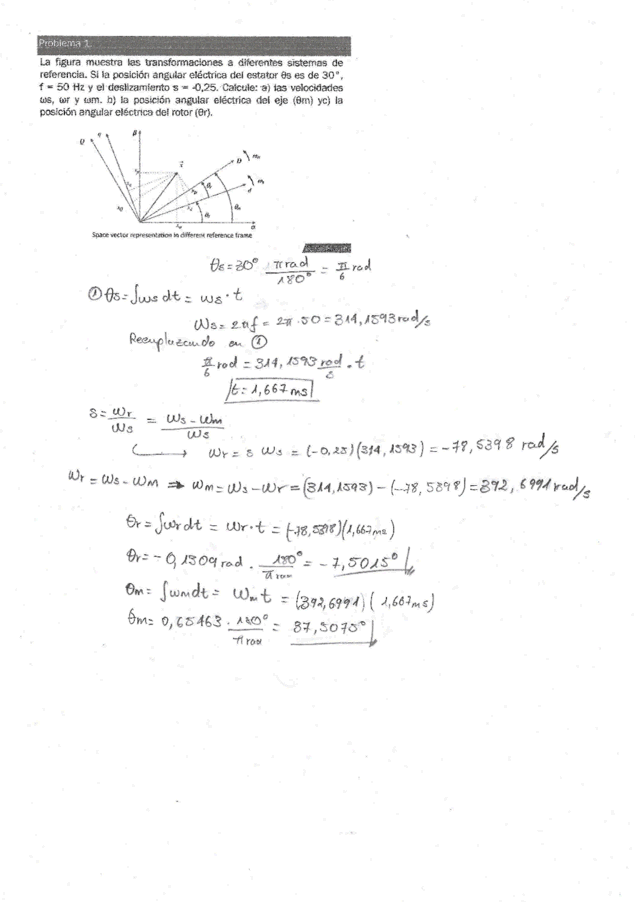 Problema 1.
La figura muestra las transformaciones a diferentes sistemas de
referencia. Si la posición angular eléctrica del estator θs es de 30°,
f = 50 Hz y el deslizamiento s = -0,25. Calcule: a) las velocidades
ωs, ωr y ωm. b) la posición angular eléctrica del eje (θm) yc) la
posición angular eléctrica del rotor (θr).
Space vector representation in different reference frame
θs = 30° π rad / 180° = π/6 rad
① θs = ∫ωs dt = ωs · t
ωs = 2πf = 2π · 50 = 314,1593 rad/s
Reemplazando en ①
π/6 rad = 314,1593 rad/s · t
t = 1,667 ms
s = ωr/ωs = (ωs - ωm)/ωs
→ ωr = s ωs = (-0,25)(314,1593) = -78,5398 rad/s
ωr = ωs - ωm ⇒ ωm = ωs - ωr = (314,1593) - (-78,5398) = 392,6991 rad/s
θr = ∫ωr dt = ωr · t = (-78,5398)(1,667 ms)
θr = -0,1309 rad · 180°/π rad = -7,5015°
θm = ∫ωm dt = ωm t = (392,6991)(1,667 ms)
θm = 0,65463 · 180°/π rad = 37,5075°